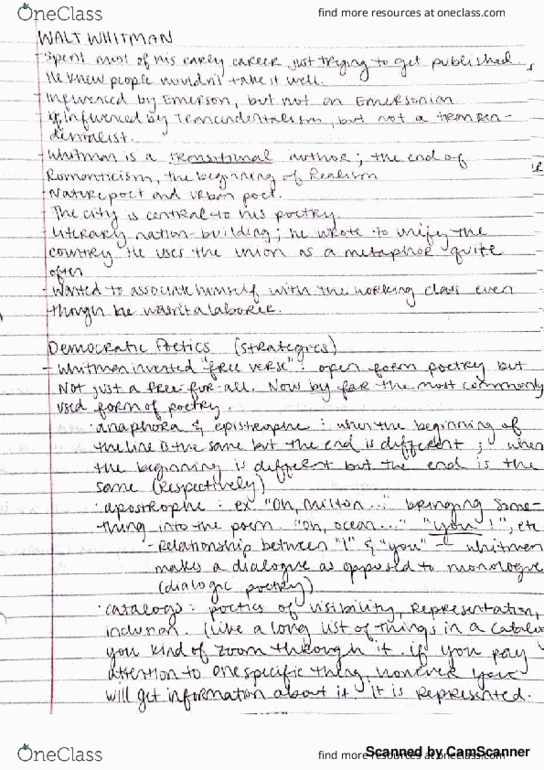 OneClass find more resources at oneclass.com
WALT WHITMAN
- Spent most of his early career just trying to get published,
He knew people wouldn't take it well.
- Influenced by Emerson, but not an Emersonian
influenced by Trancendentalism, but not a transcen-
dentalist.
- Whitman is a transitional author; the end of
Romanticism, the beginning of Realism
- Nature poet and urban poet.
- The city is central to his poetry.
- literary nation-building; he wrote to unify the
country. He uses the union as a metaphor quite
often
- Wanted to associate himself with the working class even
though he wasn't a laborer.
Democratic Poetics (strategies)
- Whitman invented "free verse": open form poetry but
Not just a free-for-all. Now by far the most commonly
used form of poetry.
· anaphora & epistrophe: when the beginning of
the line is the same but the end is different; when
the beginning is different but the end is the
same (respectively)
· apostrophe: ex "Oh, Milton..." bringing some-
thing into the poem. "Oh, ocean..." "you!", etc
- Relationship between "I" & "you" - Whitman
makes a dialogue as opposed to monologue
(dialogic poetry)
· catalogs: poetics of visibility, Representation,
inclusion. (like a long list of things in a catalo
you kind of zoom through it. if you pay
attention to one specific thing, however you
will get information about it. it is represented.
OneClass find more resources at oneclass.com
Scanned by CamScanner